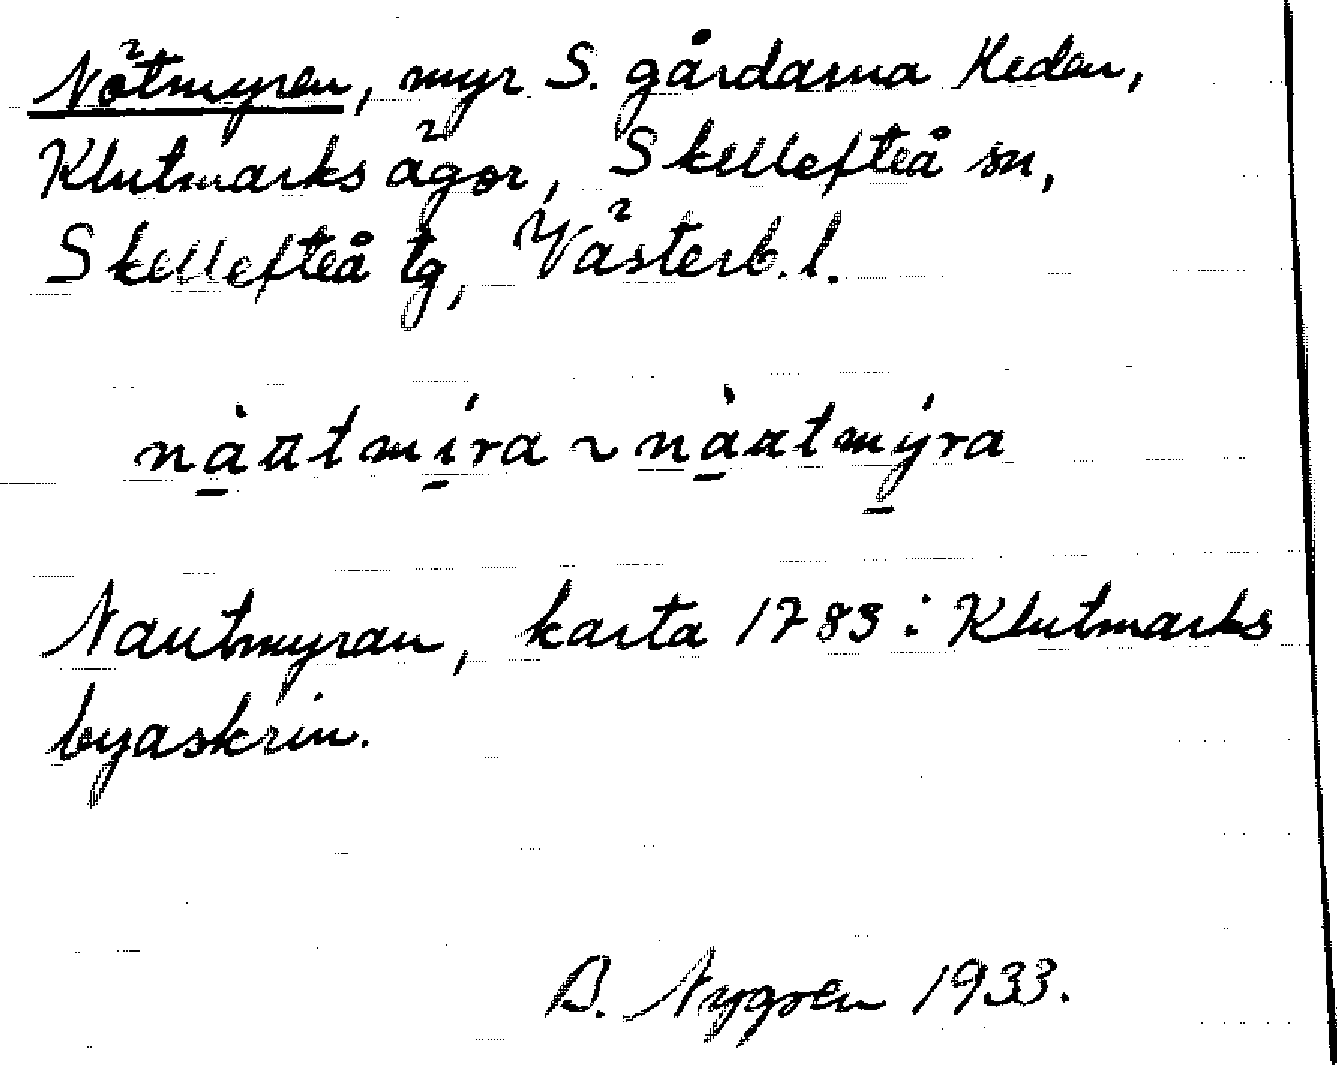 Nötmyren, myr S. gårdarna Heden,
Klutmarks ägor, Skellefteå sn,
Skellefteå tg, Västerb. l.
nàɑtmíra ~ nàɑtmýra
Nautmyran, karta 1783 i Klutmarks
byaskrin.
B. Nygren 1933.